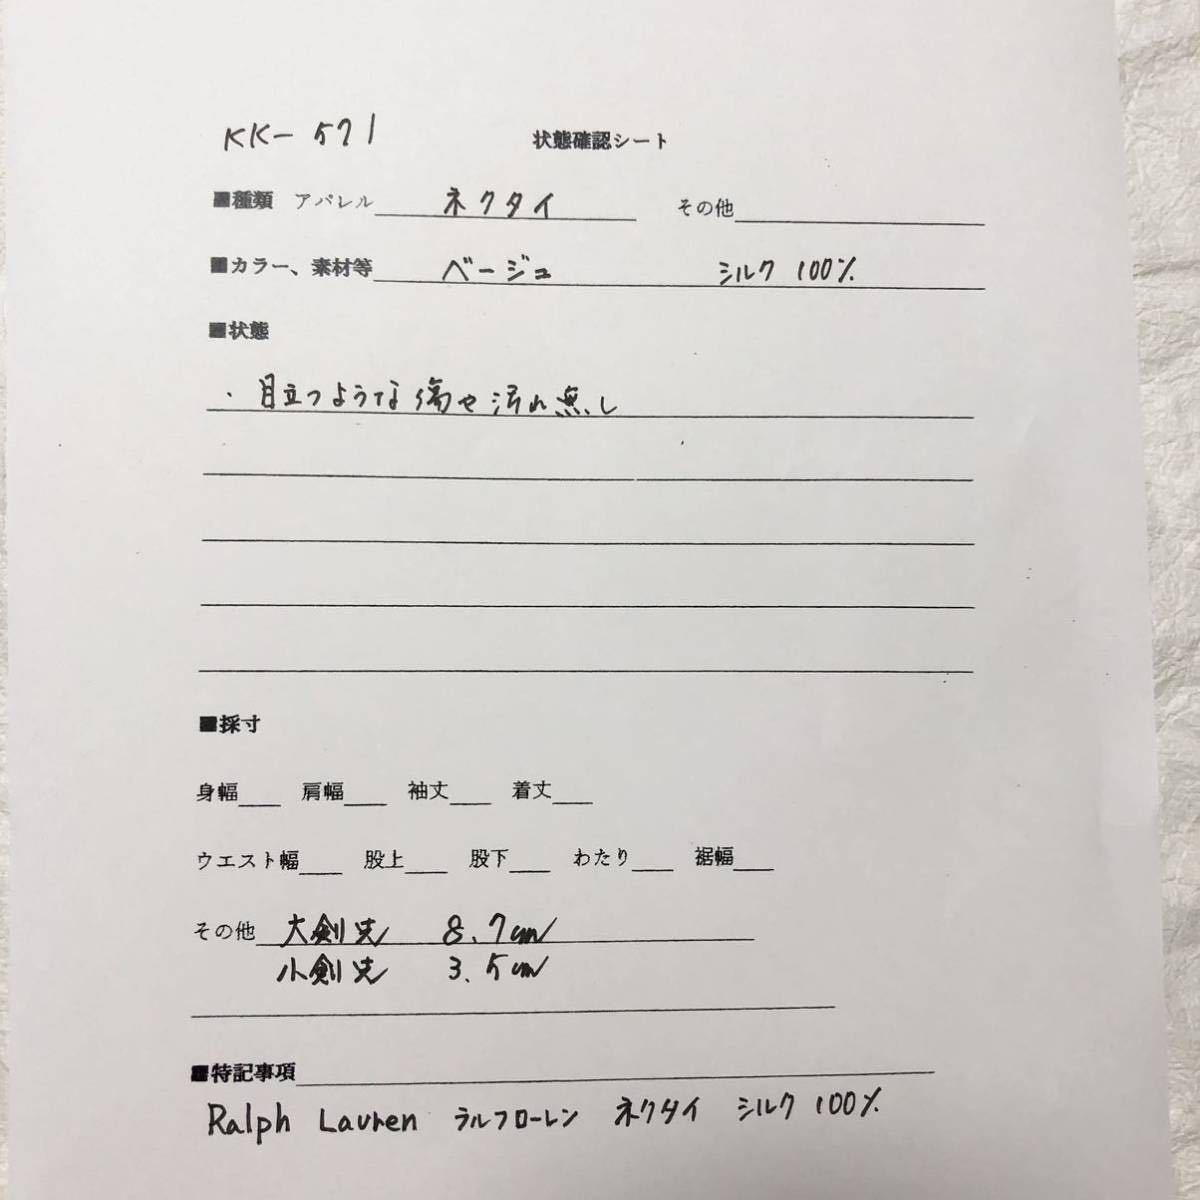 KK-571 状態確認シート
■種類 アパレル ネクタイ その他
■カラー、素材等 ベージュ シルク 100%
■状態
・目立つような傷や汚れ無し
■採寸
身幅 肩幅 袖丈 着丈
ウエスト幅 股上 股下 わたり 裾幅
その他 大剣先 8.7cm
小剣先 3.5cm
■特記事項
Ralph Lauren ラルフローレン ネクタイ シルク 100%